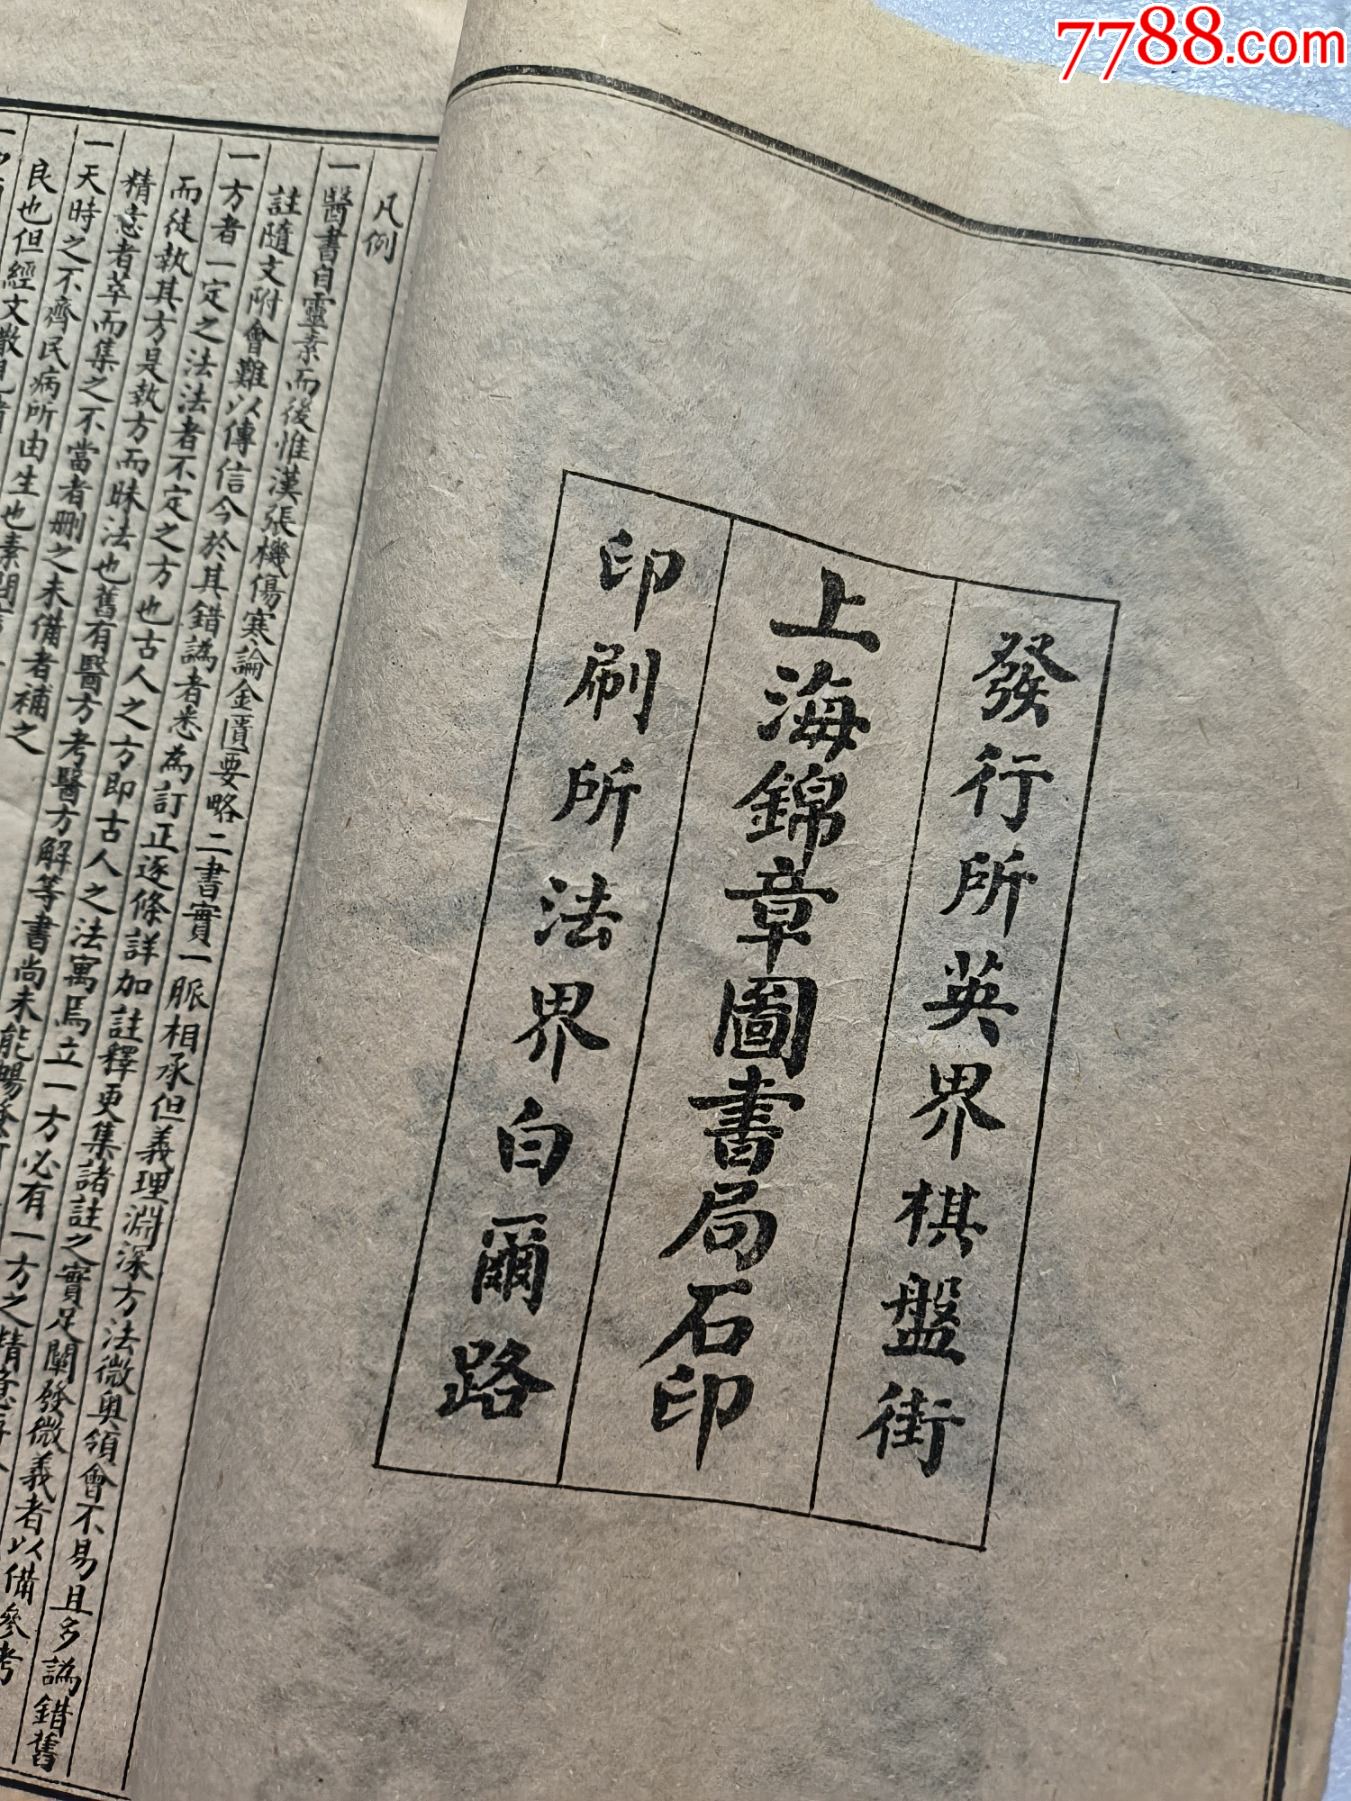 7788.com
發行所英界棋盤街
上海錦章圖書局石印
印刷所法界白爾路
凡例
一醫書自靈素而後惟漢張機傷寒論金匱要略二書實一脈相承但義理淵深方法微奥領會不易且多譌錯舊
註隨文附會難以傳信今於其錯譌者悉為訂正逐條詳加註釋更集諸註之實足闡發微義者以備參考
一方者一定之法法者不定之方也古人之方即古人之法寓焉立一方必有一方之精
而徒執其方是執方而昧法也舊有醫方考醫方解等書尚未能暢
精意者萃而集之不當者刪之未備者補之
一天時之不齊民病所由生也素問
良也但經文散見